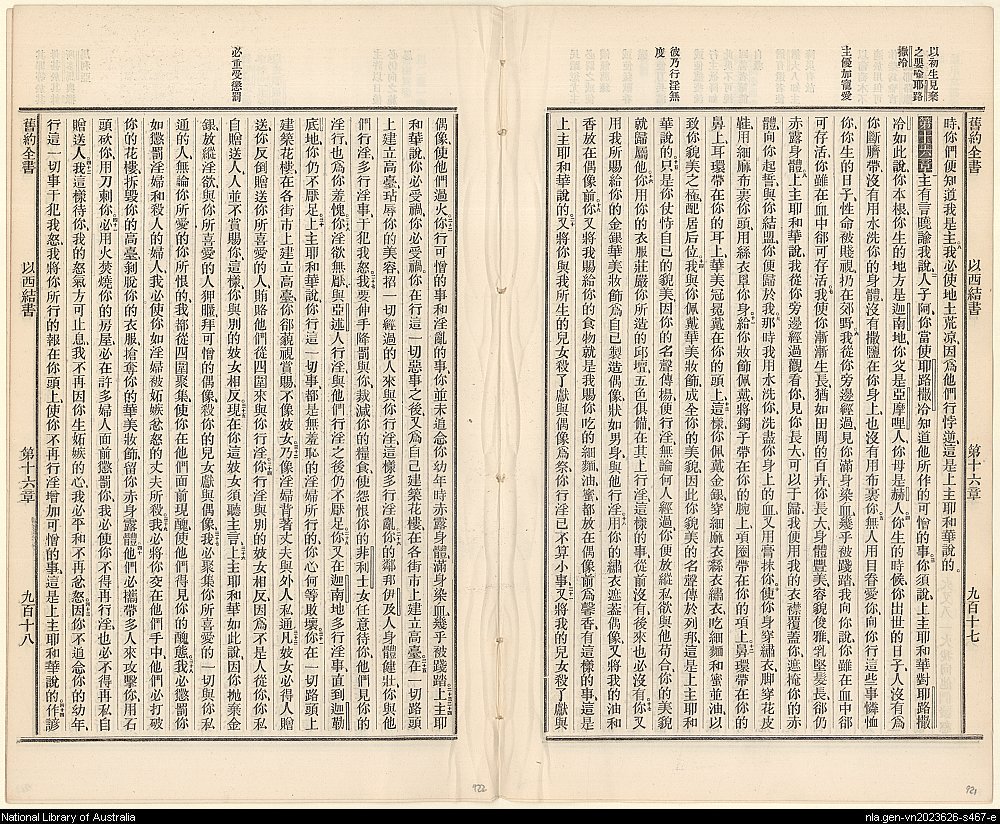 以初生見棄
之嬰喻耶路
撒冷
主優加寵愛
彼乃行淫無
度
舊約全書
以西結書
第十六章
九百十七
時你們便知道我是主我必使地土荒凉因爲他們行悖逆這是上主耶和華說的
第十六章主有言曉諭我說人子阿你當使耶路撒冷知道他所作的可憎的事你須說上主耶和華對耶路撒
冷如此說你本根你生的地方是迦南地你父是亞摩哩人你母是赫人你生的時候你出世的日子人沒有爲
你斷臍帶沒有用水洗你的身體沒有撒鹽在你身上也沒有用布裹你無人用目眷愛你向你行這些事憐恤
你你生的日子性命被賤視扔在郊野我從你旁邊經過見你滿身染血幾乎被踐踏我向你說你雖在血中卻
可存活你雖在血中卻可存活我使你漸漸生長猶如田間的百卉你長大身體豐美容貌俊雅乳堅髮長卻仍
赤露身體上主耶和華說我從你旁邊經過觀看你見你長大可以于歸我便用我的衣襟覆蓋你遮掩你的赤
體向你起誓與你結盟你便歸於我那時我用水洗你洗盡你身上的血又用膏抹你使你身穿繡衣脚穿花皮
鞋用細麻布裹你頭用絲衣罩你身給你妝飾佩戴將鐲子帶在你的腕上項圈帶在你的項上鼻環帶在你的
鼻上耳環帶在你的耳上華美冠冕戴在你的頭上這樣你佩戴金銀穿細麻衣絲衣繡衣吃細麵和蜜並油以
致你貌美之極配居后位我與你佩戴華美妝飾成全你的美貌因此你貌美的名聲傳於列邦這是上主耶和
華說的只是你使恃自己的貌美因你的名聲傳揚便行淫無論何人經過你便放縱私欲與他苟合你的美貌
就歸屬他你用你的衣服粧嚴你所造的邱壇五色俱備在其上行淫這樣的事從前沒有後來也必沒有你又
用我所賜給你的金銀華美妝飾爲自己製造偶像狀如男身與他行淫用你的繡衣遮蓋偶像又將我的油和
香放在偶像前你又將我賜給你的食物就是我賜你吃的細麵油蜜都放在偶像前爲馨香有這樣的事這是
上主耶和華說的又將你與我所生的兒女殺了獻與偶像爲祭你行淫已不算小事又將我的兒女殺了獻與
必重受懲罰
偶像使他們過火你行可憎的事和淫亂的事你並未追念你幼年時赤露身體滿身染血幾乎被踐踏上主耶
和華說你必受禍你必受禍你在行這一切惡事之後又爲自己建築花樓在各街市上建立高臺在一切路頭
上建立高臺玷辱你的美容招一切經過的人來與你行淫這樣多行淫亂你的鄰邦伊及人身體健壯你與他
們行淫多行淫事干犯我怒我要伸手降罰與你裁減你的糧食使怨恨你的非利士女任意待你他們見你的
淫行也爲你羞愧你淫欲無厭與亞述人行淫與他們行淫之後仍不厭足你又在迦南地多行淫事直到迦勒
底地你仍不厭足上主耶和華說你行這一切事都是無羞恥的淫婦所行的你心何等敗壞你在一切路頭上
建築花樓在各街市上建立高臺你卻藐視賞賜不像妓女乃像淫婦背著丈夫與外人私通凡妓女必得人贈
送你反倒贈送你所喜愛的人賄賂他們從四圍來與你行淫你行淫與別的妓女相反因爲不是人從你你私
自贈送人人並不賞賜你這樣你與別的妓女相反現在你這妓女須聽主言上主耶和華如此說因你拋棄金
銀放縱淫欲與你所喜愛的人狎暱拜可憎的偶像殺你的兒女獻與偶像我必聚集你所喜愛的一切與你私
通的人無論你所愛的你所恨的我都從四圍聚集使你在他們面前現醜使他們得見你的醜態我必懲罰你
如懲罰淫婦和殺人的婦人我必使你如淫婦被妬嫉忿怒的丈夫所殺我必將你交在他們手中他們必打破
你的花樓拆毀你的高臺剝脫你的衣服搶奪你的華美妝飾留你赤身露體他們必攜帶多人來攻擊你用石
頭砍你用刀刺你必用火焚燒你的房屋必在許多婦人面前懲罰你我必使你不得再行淫也必不得再私自
贈送人我這樣待你我的怒氣方可止息我不再因你生妬嫉的心我必平和不再忿怒因你不追念你的幼年
行這一切事干犯我怒我將你所行的報在你頭上使你不再行淫增加可憎的事這是上主耶和華說的作諺
舊約全書
以西結書
第十六章
九百十八
922
921
National Library of Australia
nla.gen-vn2023626-s467-e